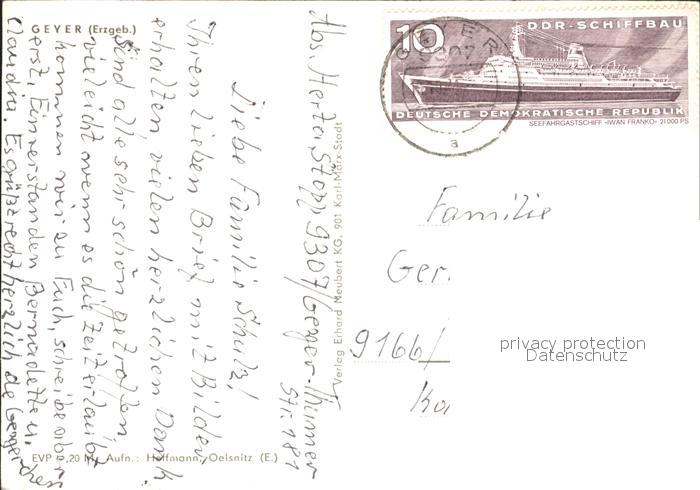 GEYER (Erzgeb.)
Abs. Herta Stopp, 9307/Geyer-Thumer
Str. 181
Liebe Familie Schulz!
Ihren lieben Brief mit Bilder
erhalten vielen herzlichen Dank
sind alle sehr schön getroffen
vieleicht wenn es die Zeit erlaubt
kommen wir zu Euch, schreibe aber
erst. Einverstanden Bernadette u.
Claudia. Es grüßt recht herzlich die Geyerschen
EVP -,20 M Aufn.: Hoffmann, Oelsnitz (E.)
Verlag Erhard Neubert KG, 901 Karl-Marx-Stadt
10
DDR-SCHIFFBAU
DEUTSCHE DEMOKRATISCHE REPUBLIK
SEEFAHRGASTSCHIFF »IWAN FRANKO« 21000 PS
GEYER
9307
a
Familie
Ger
9166/
privacy protection
Datenschutz